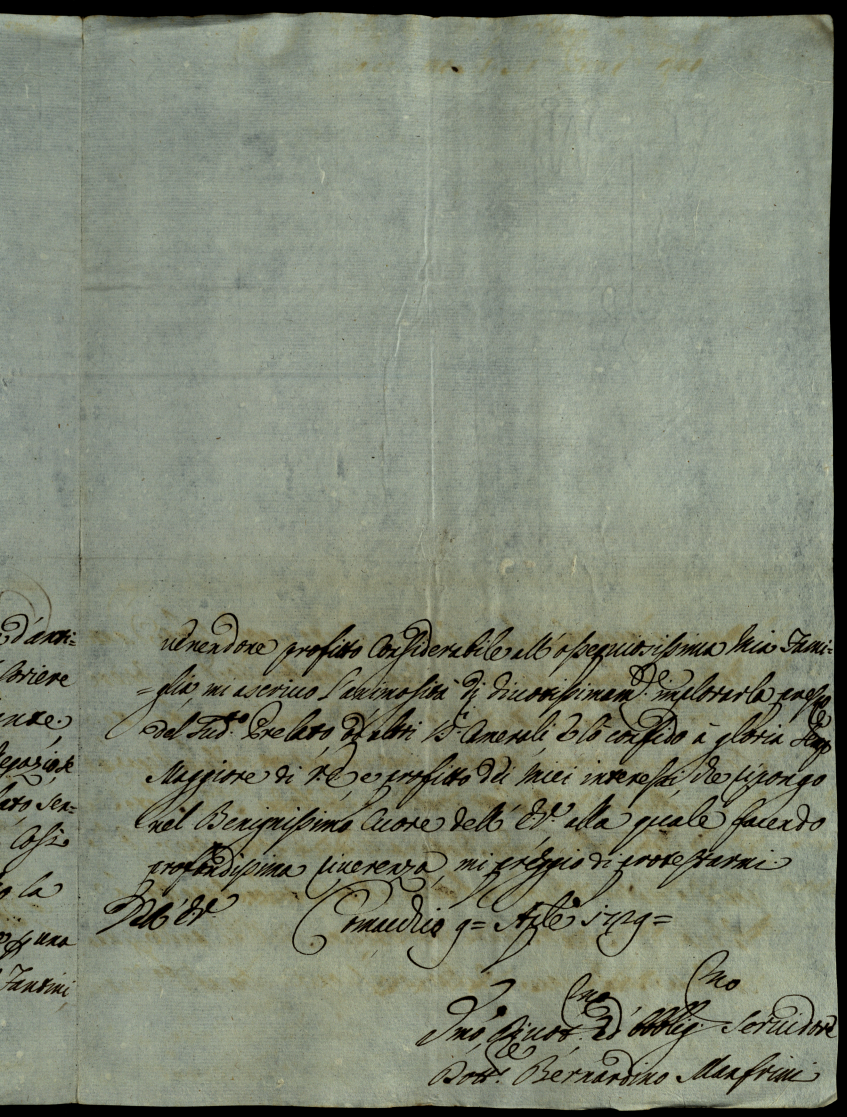 d'anti-
uenendone profitto Considerabile all'ossequiosissima Mia Fami-
=glia, mi ascriuo l'animosità di diuotissimam.te implorarla presso
del Sud.to Prelato, ed altri Camerali, e lo confido à gloria semp.e
Maggiore di e profitto déi Miei interessi, che ripongo
nél Benignissimo Cuore dell' E.V. alla quale facendo
profondissima riuerenza, mi préggio di protestarmi
Dell' E.V. Comacchio 9= Aple 1729=
la
una
Fantini
Vmo, Diuot.mo ed Obblig.mo Seruidore
Dott.e Bérnardino Manfrini